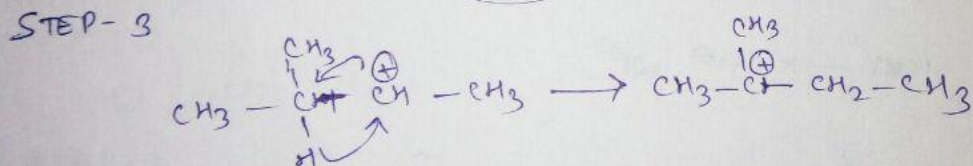 STEP-3
CH3 CH3
⊕ ⊕
CH3 - CH - CH - CH3 → CH3-C - CH2-CH3
H